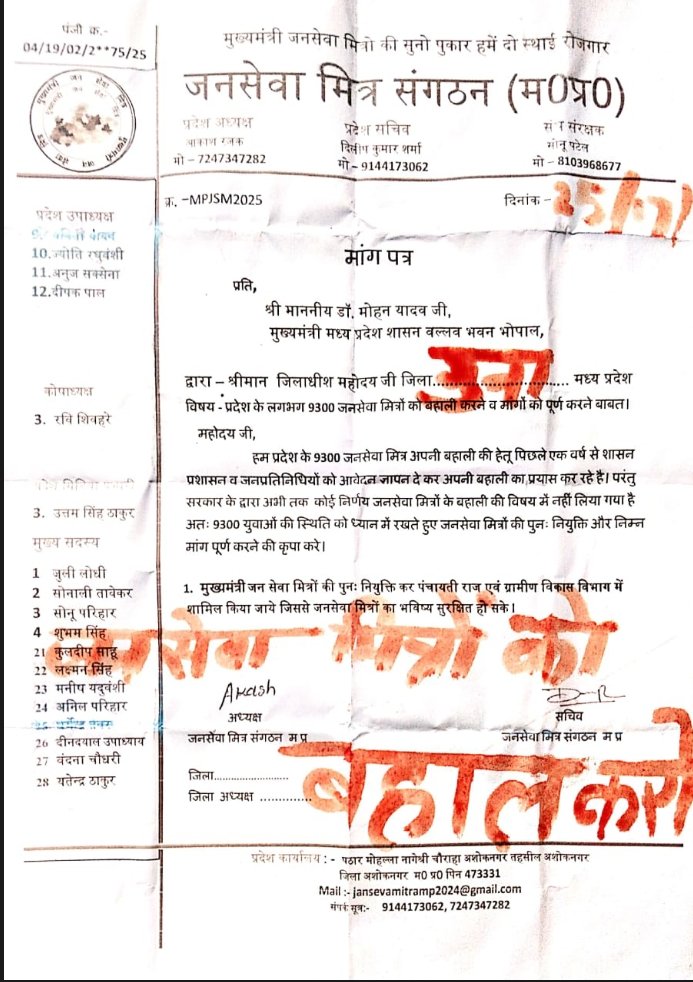 पंजी क.-
04/19/02/2**75/25
मुख्यमंत्री जनसेवा मित्रो की सुनो पुकार हमें दो स्थाई रोजगार
जनसेवा मित्र संगठन (म0प्र0)
प्रदेश अध्यक्ष
आकाश रजक
मो – 7247347282
प्रदेश सचिव
दिलीप कुमार शर्मा
मो – 9144173062
संरक्षक
मोनू पटेल
मो – 8103968677
क्र. -MPJSM2025
दिनांक - 25/
प्रदेश उपाध्यक्ष
10. ज्योति रघुवंशी
11. अनुज सक्सेना
12. दीपक पाल
कोपाध्यक्ष
3. रवि शिवहरे
3. उत्तम सिंह ठाकुर
मुख्य सदस्य
1 जुली लोधी
2 सोनाली तावेकर
3 सोनू परिहार
4 शुभम सिंह
21 कुलदीप साहू
22 लक्ष्मन सिंह
23 मनीष यदुवंशी
24 अनिल परिहार
26 दीनदयाल उपाध्याय
27 वंदना चौधरी
28 यतेन्द्र ठाकुर
मांग पत्र
प्रति,
श्री माननीय डॉ. मोहन यादव जी,
मुख्यमंत्री मध्य प्रदेश शासन वल्लव भवन भोपाल,
द्वारा – श्रीमान जिलाधीश महोदय जी जिला..... मध्य प्रदेश
विषय - प्रदेश के लगभग 9300 जनसेवा मित्रों को बहाली करने व मांगों को पूर्ण करने बाबत।
महोदय जी,
हम प्रदेश के 9300 जनसेवा मित्र अपनी बहाली की हेतू पिछले एक वर्ष से शासन
प्रशासन व जनप्रतिनिधियों को आवेदन ज्ञापन दे कर अपनी बहाली का प्रयास कर रहे है। परंतु
सरकार के द्वारा अभी तक कोई निर्णय जनसेवा मित्रों के बहाली की विषय में नहीं लिया गया है
अतः 9300 युवाओं की स्थिति को ध्यान में रखते हुए जनसेवा मित्रों की पुनः नियुक्ति और निम्न
मांग पूर्ण करने की कृपा करे।
1. मुख्यमंत्री जन सेवा मित्रों की पुनः नियुक्ति कर पंचायती राज एवं ग्रामीण विकास विभाग में
शामिल किया जाये जिससे जनसेवा मित्रों का भविष्य सुरक्षित हो सके।
जनसेवा मित्रों को
Akash
अध्यक्ष
जनसेवा मित्र संगठन म प्र
सचिव
जनसेवा मित्र संगठन म प्र
बहाल करो
जिला.....................
जिला अध्यक्ष ..............
प्रदेश कार्यालय : - पठार मोहल्ला नागेश्री चौराहा अशोकनगर तहसील अशोकनगर
जिला अशोकनगर म0 प्र0 पिन 473331
Mail :- jansevamitramp2024@gmail.com
संपर्क सूत्र:- 9144173062, 7247347282